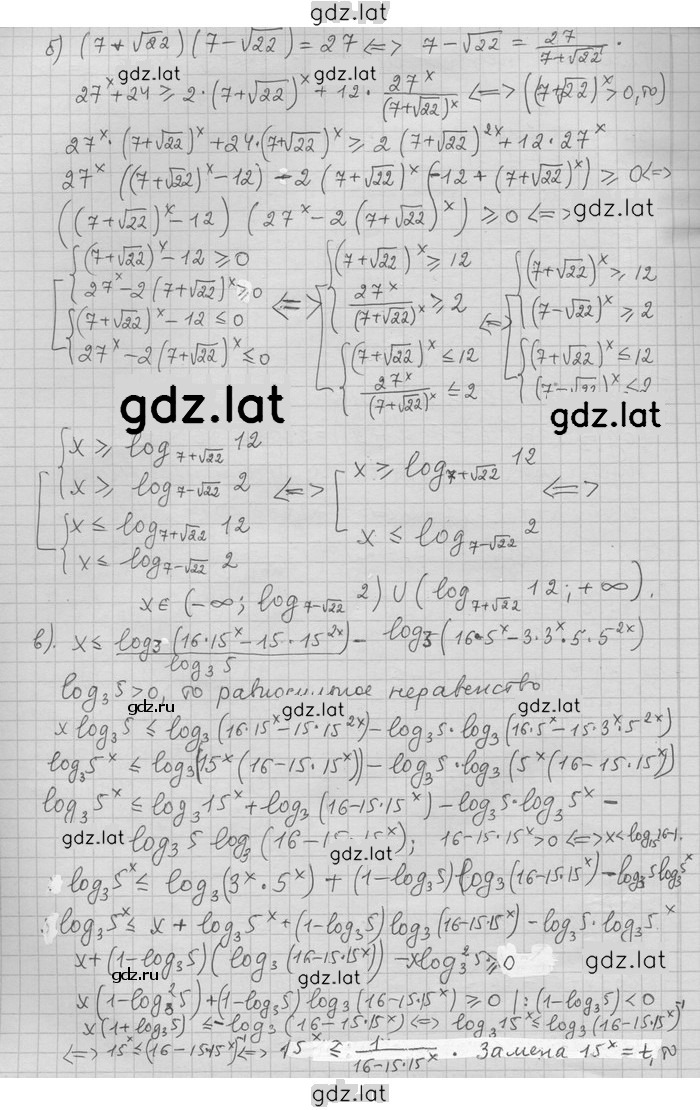 gdz.lat
б) (7+√22)(7-√22) = 27 <=> 7-√22 = 27/(7+√22).
gdz.lat gdz.lat gdz.lat
27^x + 24 ≥ 2·(7+√22)^x + 12· 27^x/(7+√22)^x <=> ((7+√22)^x > 0, то)
27^x·(7+√22)^x + 24·(7+√22)^x ≥ 2(7+√22)^2x + 12·27^x
27^x ((7+√22)^x - 12) - 2 (7+√22)^x (-12 + (7+√22)^x) ≥ 0 <=>
gdz.lat
((7+√22)^x - 12) (27^x - 2(7+√22)^x) ≥ 0 <=>
[ { (7+√22)^x - 12 ≥ 0
27^x - 2(7+√22)^x ≥ 0
{ (7+√22)^x - 12 ≤ 0
27^x - 2(7+√22)^x ≤ 0
<=> [ { (7+√22)^x ≥ 12
27^x/(7+√22)^x ≥ 2
{ (7+√22)^x ≤ 12
27^x/(7+√22)^x ≤ 2
<=> [ { (7+√22)^x ≥ 12
(7-√22)^x ≥ 2
{ (7+√22)^x ≤ 12
(7-√22)^x ≤ 2
gdz.lat gdz.lat
[ { x ≥ log_7+√22 12
x ≥ log_7-√22 2
{ x ≤ log_7+√22 12
x ≤ log_7-√22 2
<=> [ x ≥ log_7+√22 12
x ≤ log_7-√22 2
<=>
x ∈ (-∞; log_7-√22 2) ∪ (log_7+√22 12; +∞).
gdz.lat gdz.lat
в). x ≤ log_3 (16·15^x - 15·15^2x)/log_3 5 - log_3 (16·5^x - 3·3^x·5·5^2x)
log_3 5 > 0, то равносильное неравенство
gdz.lat gdz.lat
x log_3 5 ≤ log_3 (16·15^x - 15·15^2x) - log_3 5·log_3 (16·5^x - 15·3^x·5^2x)
log_3 5^x ≤ log_3 (15^x (16-15·15^x)) - log_3 5·log_3 (5^x (16-15·15^x))
log_3 5^x ≤ log_3 15^x + log_3 (16-15·15^x) - log_3 5·log_3 5^x -
gdz.lat gdz.lat
log_3 5 log_3 (16-15·15^x); 16-15·15^x > 0 <=> x < log_15 16-1.
log_3 5^x ≤ log_3 (3^x·5^x) + (1-log_3 5) log_3 (16-15·15^x) - log_3 5 log_3 5^x
log_3 5^x ≤ x + log_3 5^x + (1-log_3 5) log_3 (16-15·15^x) - log_3 5·log_3 5^x
x + (1-log_3 5)(log_3 (16-15·15^x)) - x log_3^2 5 ≥ 0
gdz.ru gdz.ru gdz.lat
x(1-log_3^2 5) + (1-log_3 5) log_3 (16-15·15^x) ≥ 0 |:(1-log_3 5) < 0
x(1+log_3 5) ≤ -log_3 (16-15·15^x) <=> log_3 15^x ≤ log_3 (16-15·15^x)^-1
<=> 15^x ≤ (16-15·15^x)^-1 <=> 15^x ≤ 1/(16-15·15^x). Замена 15^x = t, то
gdz.lat